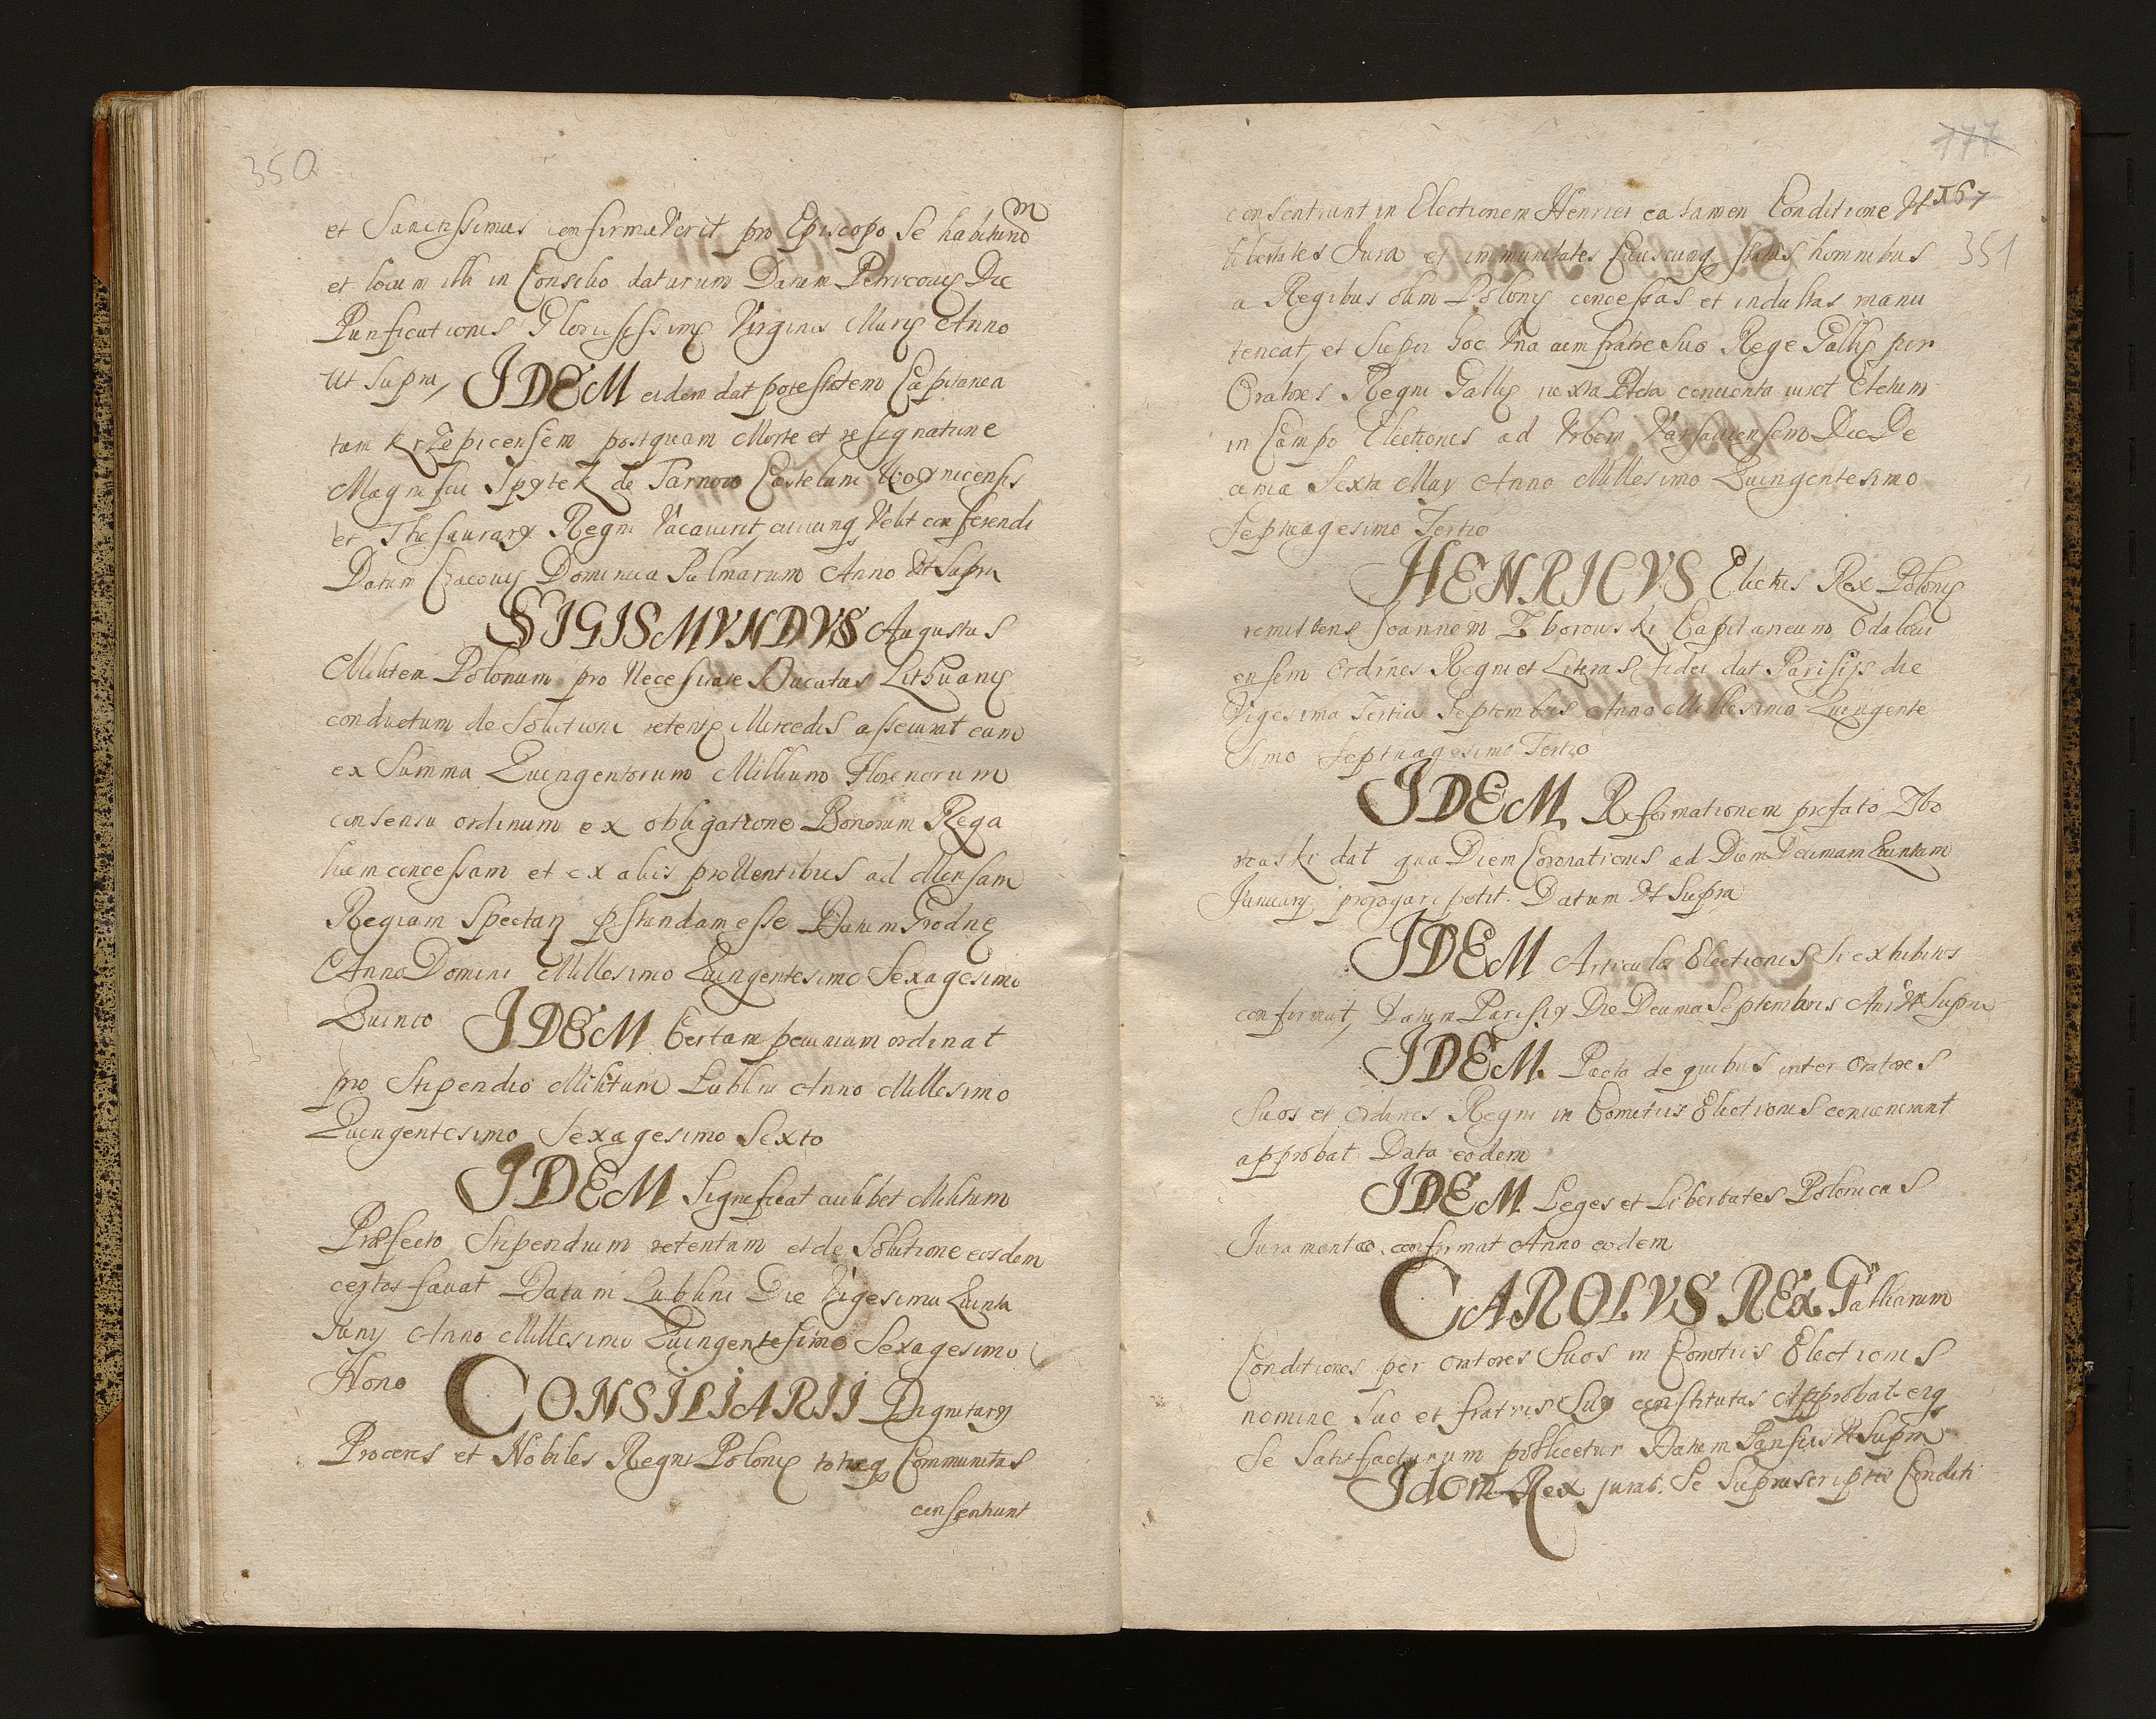 350
et Sanctissimus confirmaverit pro Episcopo Se habiturum
et locum illi in Consilio daturum Datum Petricoviæ Die
Purificationis Gloriosissimæ Virginis Mariæ Anno
Ut Supra, IDEM eidem dat potestatem Capitanea
tum Krzepicensem postquam Morte et resignatione
Magnifici Spytek de Tarnow Castelani Woynicensis
et Thesaurary Regni Vacaverit, cuicunq Velit conferendi
Datum Cracoviæ Dominica Palmarum Anno Ut Supra
SIGISMVNDVS Augustus
Militem Polonum pro Necessitate Ducatus Lithuaniæ
conductum de Solutione retentæ Mercedis assecurat eam
ex Summa Quingentorum Millium Florenorum
consensu ordinum ex obligatione Bonorum Rega
lium concessam et ex aliis proventibus ad Mensam
Regiam Spectan præstandam esse Datum Grodnæ
Anno Domini Millesimo Quingentesimo Sexagesimo
Quinto IDEM Certam pecuniam ordinat
pro Stipendio Militum Lublin Anno Millesimo
Quingentesimo Sexagesimo Sexto
IDEM Significat cuilibet Militum
Præfecto Stipendium retentum et de Solutione eosdem
certos favat Datum Lublini Die Vigesima Quinta
Juny Anno Millesimo Quingentesimo Sexagesimo
Nono CONSILIARII Dignitary
Proceres et Nobiles Regni Poloniæ totaq Communitas
consentiunt
177
167
351
consentiunt in Electionem Henrici ea tamen Conditione Ut
libertates Jura et immunitates Cuiuscunq status hominibus
a Regibus olim Poloniæ concessas et indultas manu
teneat, et Super hoc Una cum fratre Suo Rege Galliæ per
Oratores Regni Galliæ iuxta Pacta conventa iuret Actum
in Campo Electionis ad Urbem Varsaviensem Die De
cima Sexta May Anno Millesimo Quingentesimo
Septuagesimo Tertio
HENRICVS Electus Rex Poloniæ
remittens Joannem Zborowski Capitaneum Odalanu
ensem ordines Regni et Literas fidei dat Parisiis die
Vigesima Tertia Septembris Anno Millesimo Quingente
simo Septuagesimo Tertio
IDEM Reformationem prefato Zbo
rowski dat qua Diem Coronationis ad Diem Decimam Quintam
January prorogari petit. Datum Ut Supra
IDEM Articulos Electionis Si exhibitos
confirmat, Datum Parisiy Die Decima Septembris An: Ut Supra
IDEM Pacta de quibus inter oratores
Suos et ordines Regni in Comitiis Electionis convenerant
approbat Data eodem
IDEM Leges et Libertates Polonicas
Juramento confirmat Anno eodem
CAROLVS REX Galliarum
Conditiones per oratores Suos in Comitiis Electionis
nomine Suo et fratris Suy constitutas Approbat eisq
Se Satisfacturum pollicetur Datum Parisiis Ut Supra
Idem Rex jurat. Se Suprascriptis Conditi